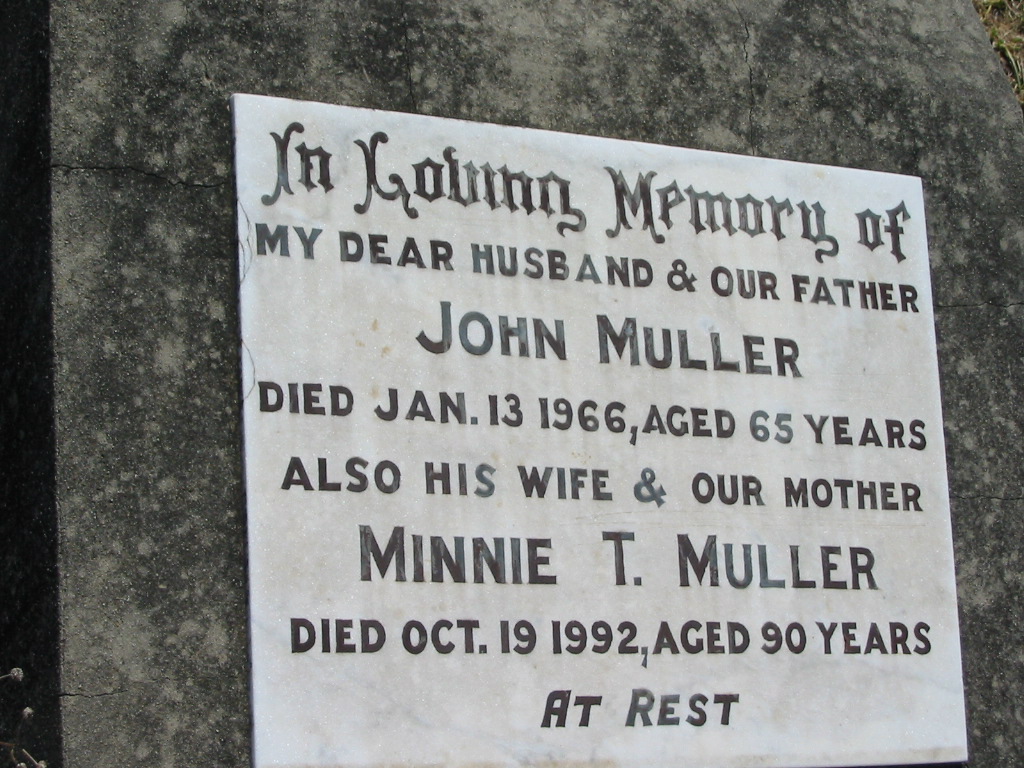 In Loving Memory of
MY DEAR HUSBAND & OUR FATHER
JOHN MULLER
DIED JAN. 13 1966, AGED 65 YEARS
ALSO HIS WIFE & OUR MOTHER
MINNIE T. MULLER
DIED OCT. 19 1992, AGED 90 YEARS
AT REST